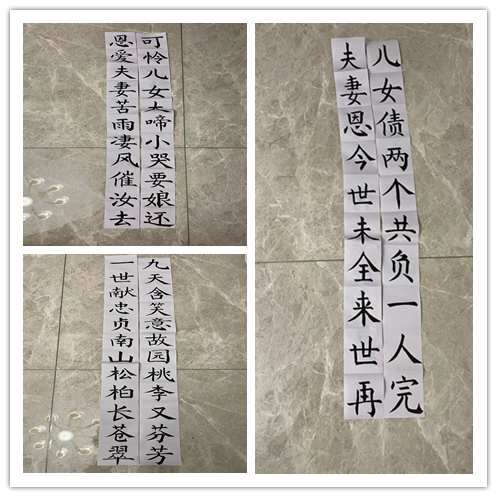 恩爱夫妻苦雨凄风催汝去
可怜儿女大啼小哭要娘还
一世献忠贞南山松柏长苍翠
九天含笑意故园桃李又芬芳
夫妻恩今世未全来世再
儿女债两个共负一人完